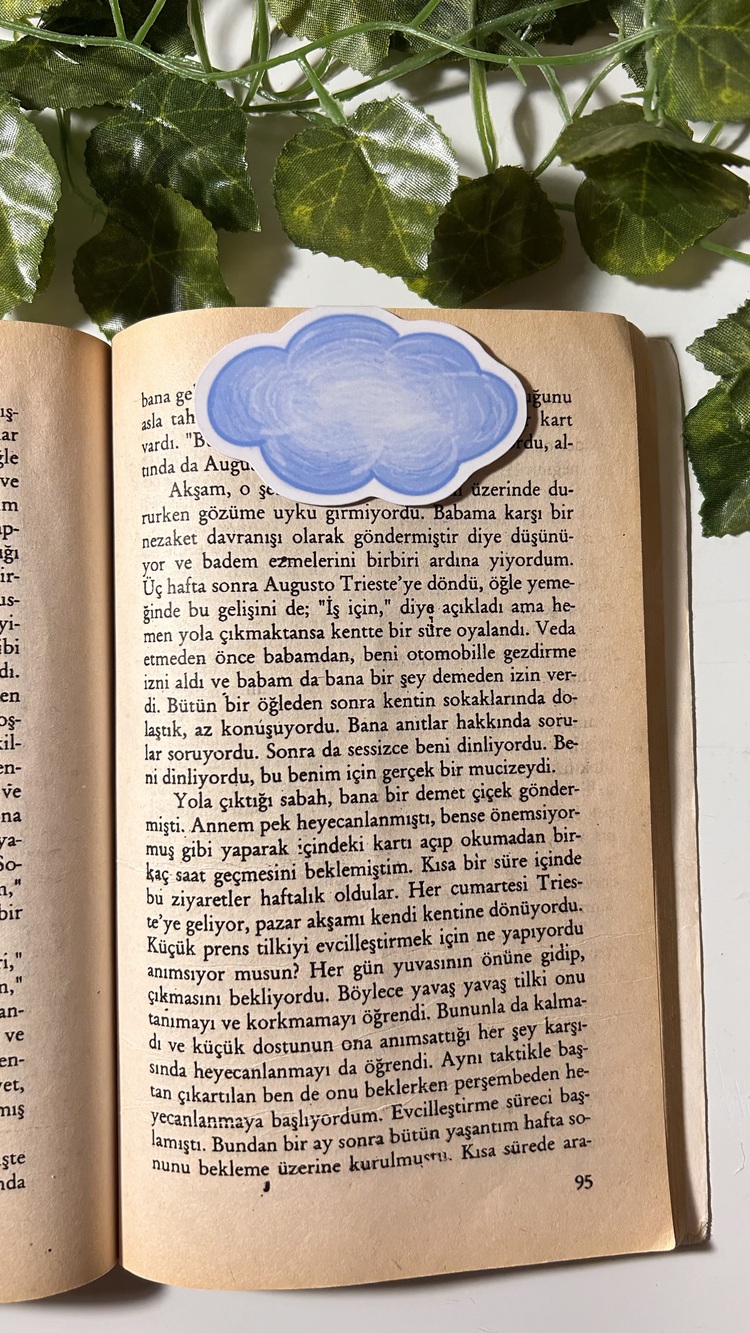 ış-
ar
ğle
ve
m
ap-
ığı
ir-
us-
yi-
ibi
dı.
en
oş-
il-
en-
ve
na
ya-
So-
n,"
bir
ri,"
n,"
an-
ve
en-
vet,
mış
şte
nda
bana ge uğunu
asla tah kart
vardı. "B rdu, al-
tında da Augu
Akşam, o şe üzerinde du-
rurken gözüme uyku girmiyordu. Babama karşı bir
nezaket davranışı olarak göndermiştir diye düşünü-
yor ve badem ezmelerini birbiri ardına yiyordum.
Üç hafta sonra Augusto Trieste'ye döndü, öğle yeme-
ğinde bu gelişini de; "İş için," diye açıkladı ama he-
men yola çıkmaktansa kentte bir süre oyalandı. Veda
etmeden önce babamdan, beni otomobille gezdirme
izni aldı ve babam da bana bir şey demeden izin ver-
di. Bütün bir öğleden sonra kentin sokaklarında do-
laştık, az konuşuyordu. Bana anıtlar hakkında soru-
lar soruyordu. Sonra da sessizce beni dinliyordu. Be-
ni dinliyordu, bu benim için gerçek bir mucizeydi.
Yola çıktığı sabah, bana bir demet çiçek gönder-
mişti. Annem pek heyecanlanmıştı, bense önemsiyor-
muş gibi yaparak içindeki kartı açıp okumadan bir-
kaç saat geçmesini beklemiştim. Kısa bir süre içinde
bu ziyaretler haftalık oldular. Her cumartesi Tries-
te'ye geliyor, pazar akşamı kendi kentine dönüyordu.
Küçük prens tilkiyi evcilleştirmek için ne yapıyordu
anımsıyor musun? Her gün yuvasının önüne gidip,
çıkmasını bekliyordu. Böylece yavaş yavaş tilki onu
tanımayı ve korkmamayı öğrendi. Bununla da kalma-
dı ve küçük dostunun ona anımsattığı her şey karşı-
sında heyecanlanmayı da öğrendi. Aynı taktikle baş-
tan çıkartılan ben de onu beklerken perşembeden he-
yecanlanmaya başlıyordum. Evcilleştirme süreci baş-
lamıştı. Bundan bir ay sonra bütün yaşantım hafta so-
nunu bekleme üzerine kurulmuştu. Kısa sürede ara-
95